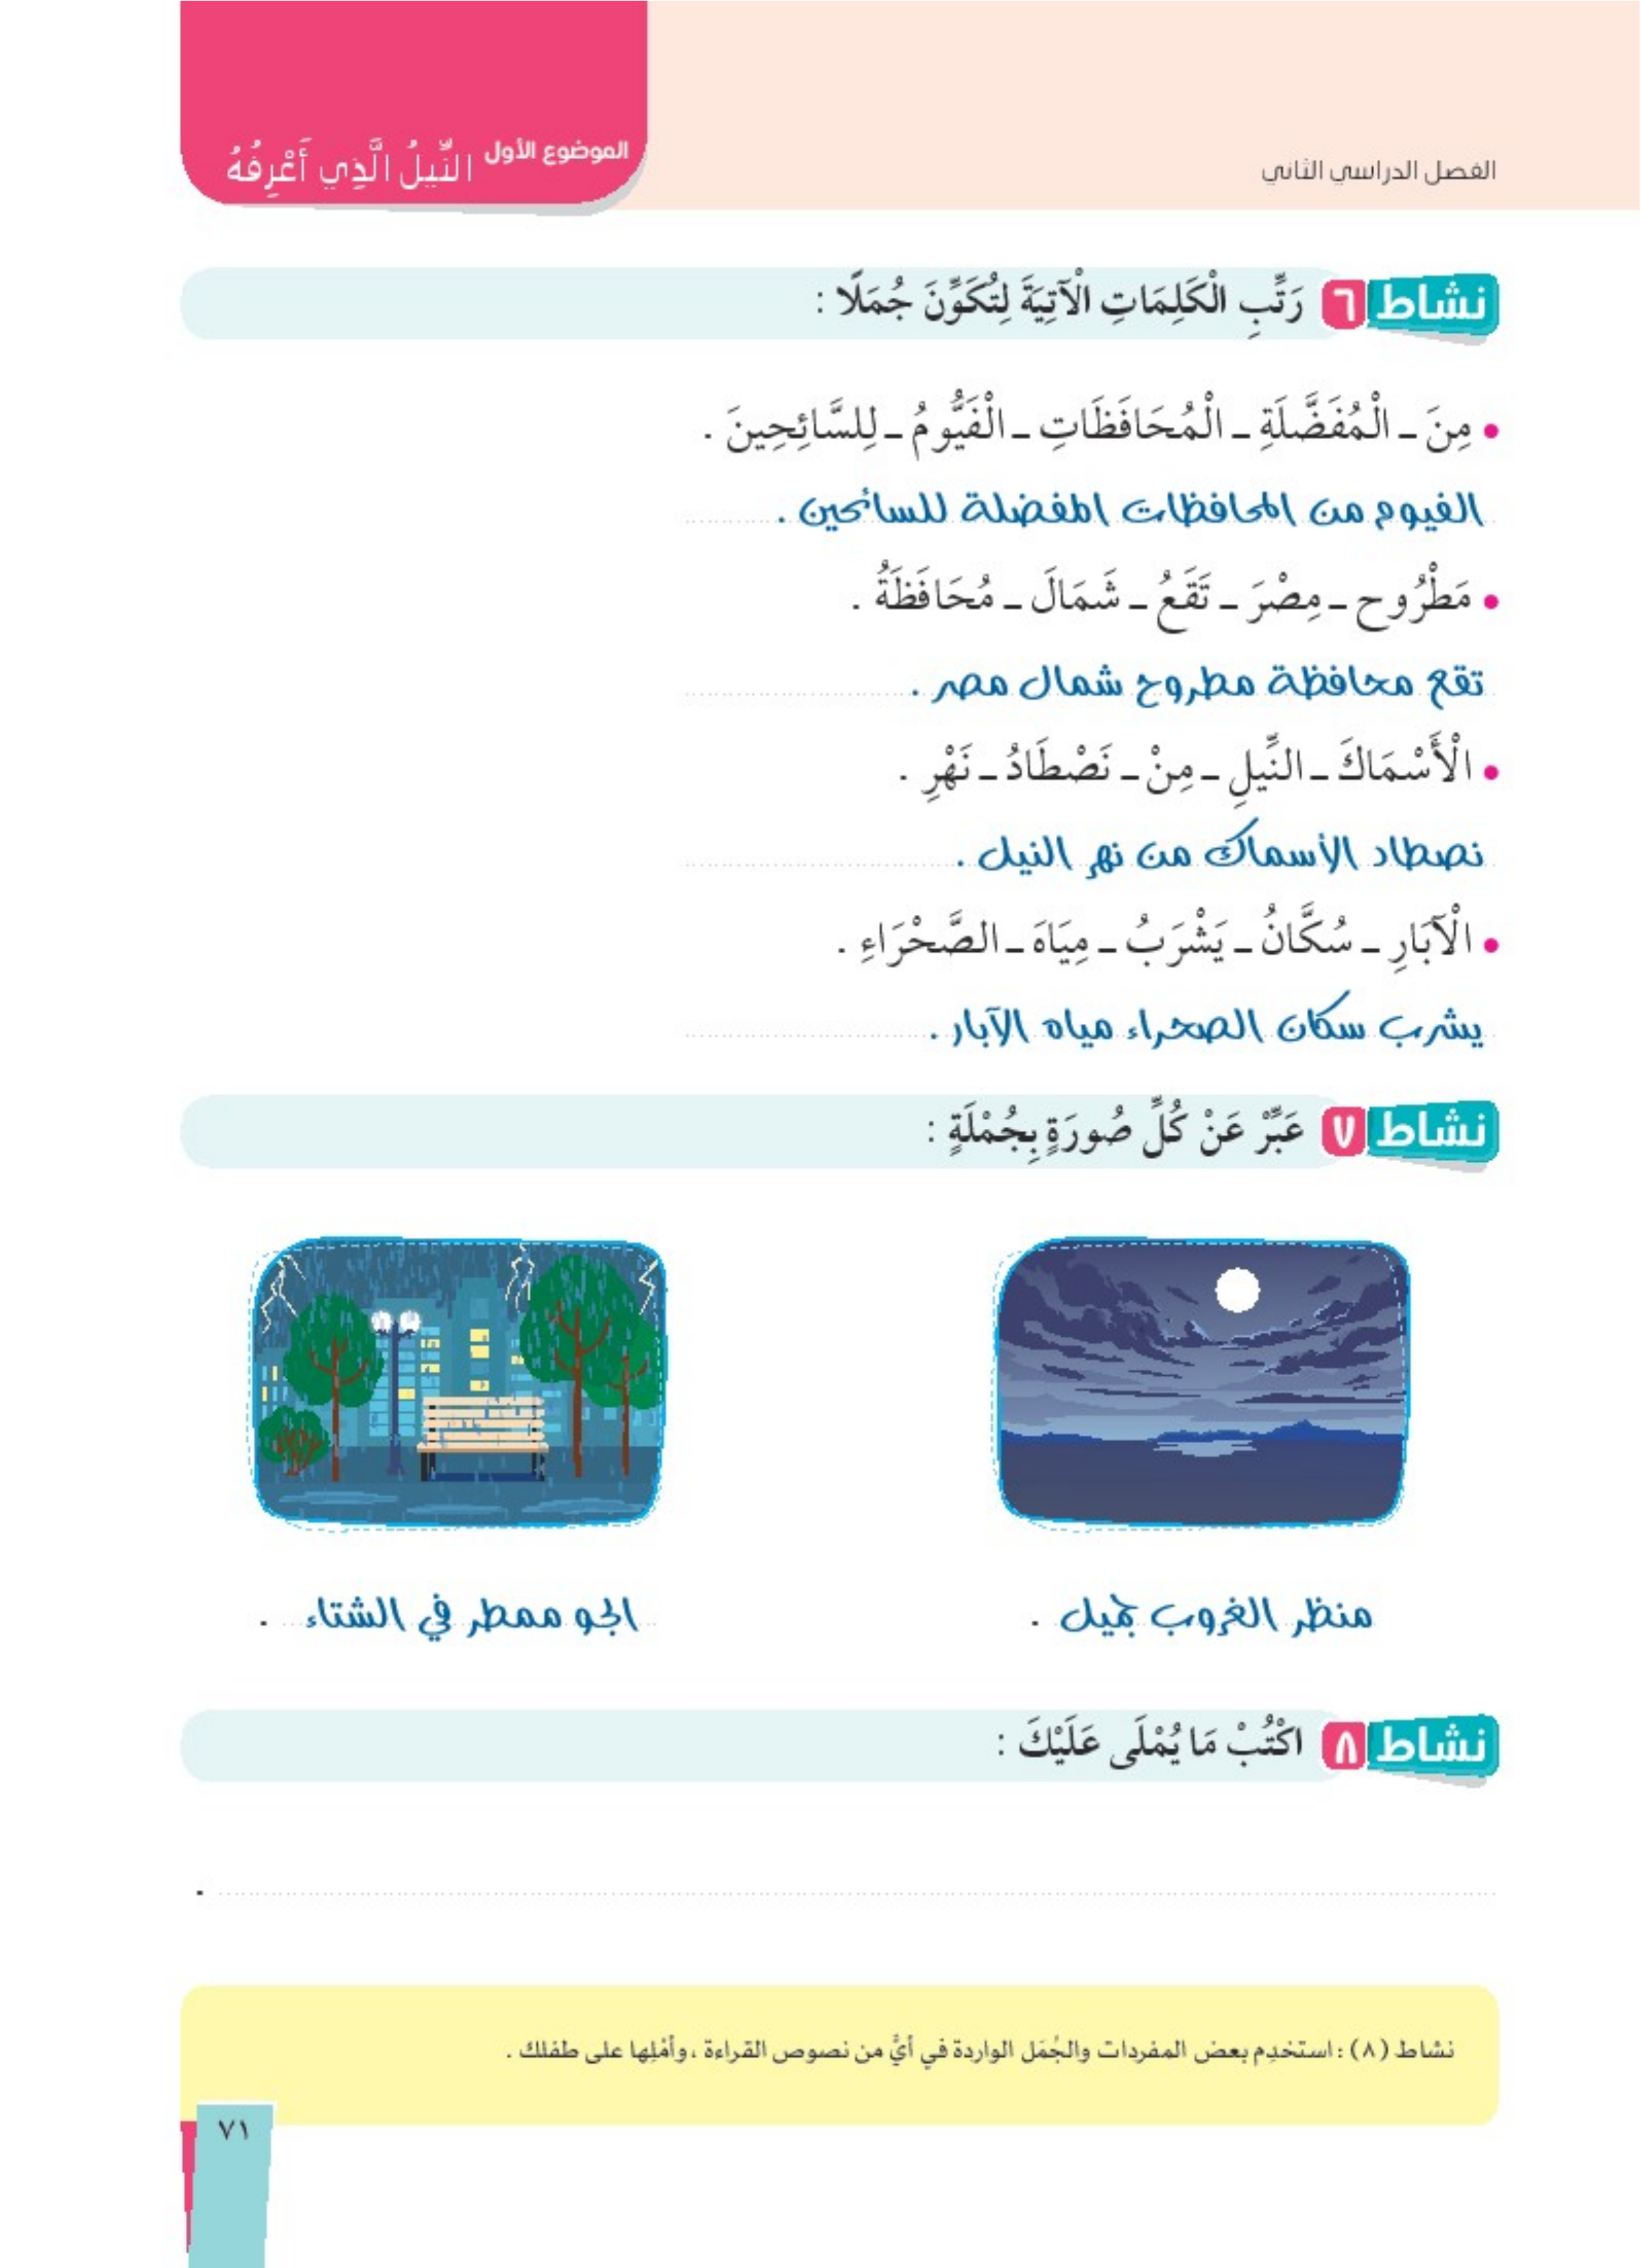 الفصل الدراسي الثاني
الموضوع الأول النِّيلُ الَّذِي أَعْرِفُهُ
نشاط ٦ رَتِّبِ الْكَلِمَاتِ الْآتِيَةَ لِتُكَوِّنَ جُمَلًا :
• مِنَ ـ الْمُفَضَّلَةِ ـ الْمُحَافَظَاتِ ـ الْفَيُّومُ ـ لِلسَّائِحِينَ .
الفيوم من المحافظات المفضلة للسائحين .
• مَطْرُوح ـ مِصْرَ ـ تَقَعُ ـ شَمَالَ ـ مُحَافَظَةُ .
تقع محافظة مطروح شمال مصر .
• الْأَسْمَاكَ ـ النِّيلِ ـ مِنْ ـ نَصْطَادُ ـ نَهْرِ .
نصطاد الأسماك من نهر النيل .
• الْآبَارِ ـ سُكَّانُ ـ يَشْرَبُ ـ مِيَاهَ ـ الصَّحْرَاءِ .
يشرب سكان الصحراء مياه الآبار .
نشاط ٧ عَبِّرْ عَنْ كُلِّ صُورَةٍ بِجُمْلَةٍ :
منظر الغروب جميل .
الجو ممطر في الشتاء .
نشاط ٨ اكْتُبْ مَا يُمْلَى عَلَيْكَ :
.
نشاط (٨) : استخدِم بعض المفردات والجُمَل الواردة في أيٍّ من نصوص القراءة ، وأمْلِها على طفلك .
٧١